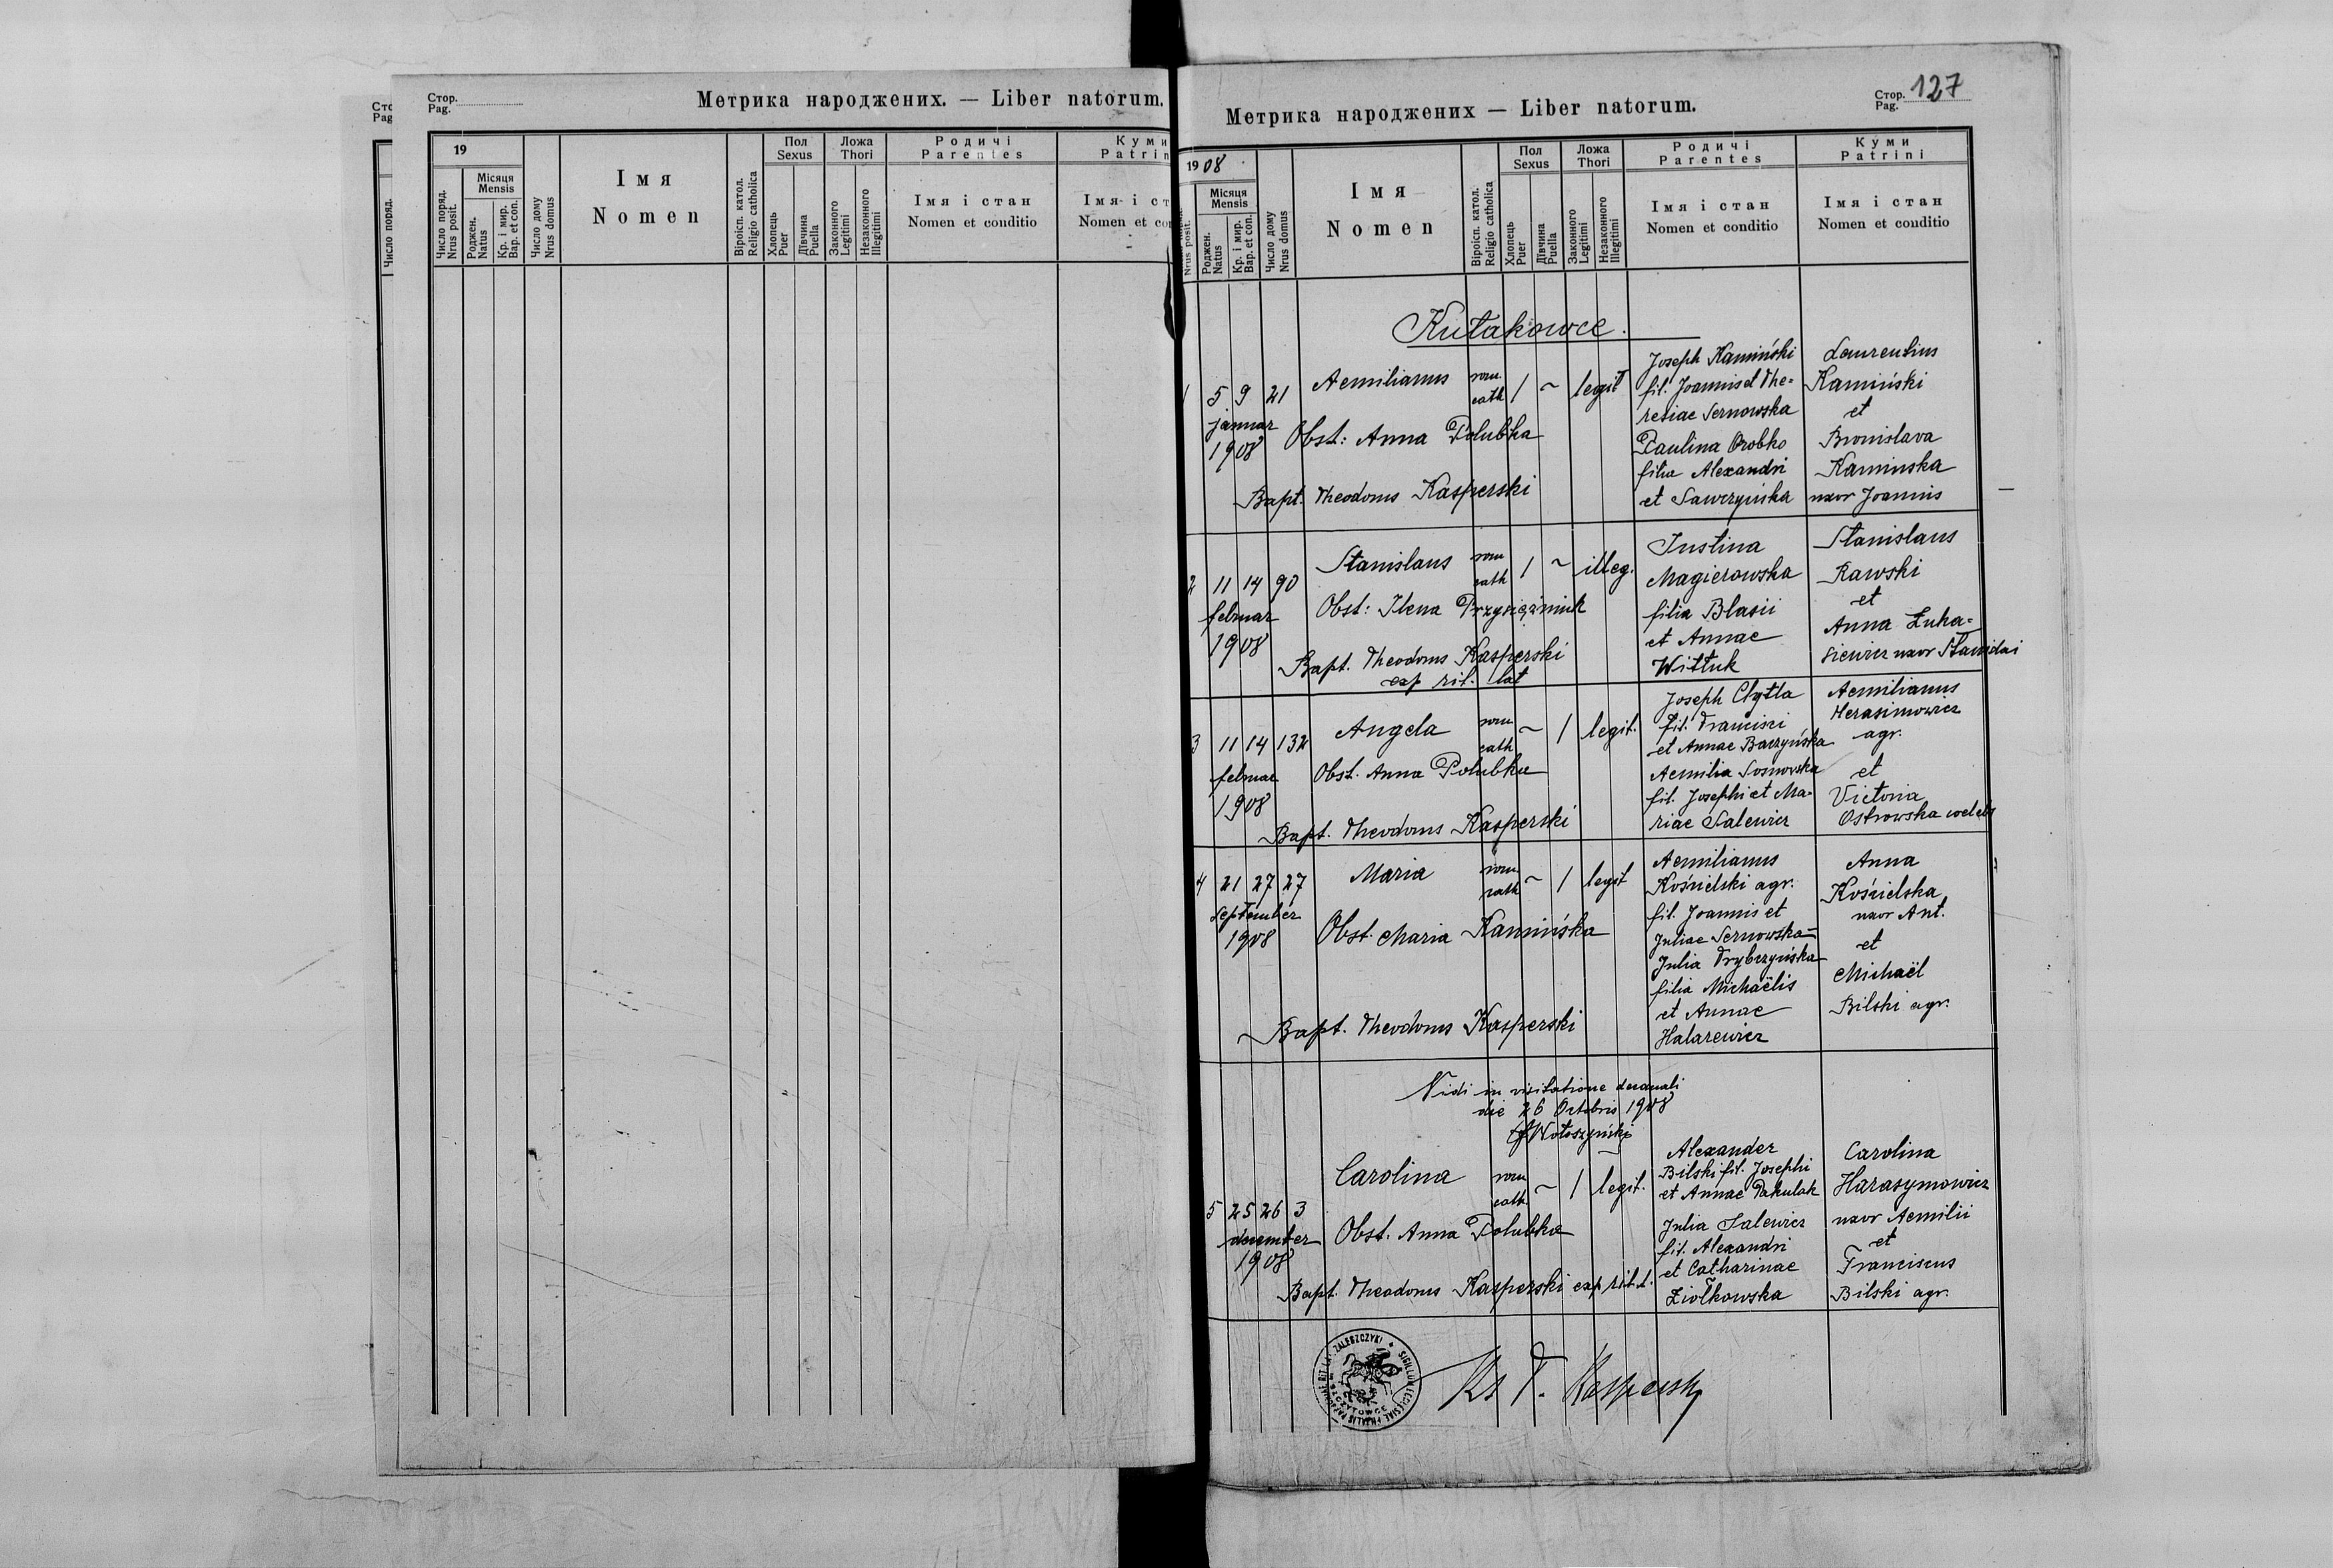 Стор.
Pag.
Метрика народжених. — Liber natorum.
19
Число поряд.
Nrus posit.
Місяця
Mensis
Роджен.
Natus
Кр. і мир.
Bap. et con.
Число дому
Nrus domus
Імя
Nomen
Віроісп. катол.
Religio catholica
Пол
Sexus
Хлопець
Puer
Дівчина
Puella
Ложа
Thori
Законного
Legitimi
Незаконного
Illegitimi
Родичі
Parentes
Імя і стан
Nomen et conditio
Куми
Patrin
Імя і ст
Nomen et co
Число поряд.
Стор.
Pag. 127
Метрика народжених — Liber natorum.
1908
Nrus posit.
Місяця
Mensis
Роджен.
Natus
Кр. і мир.
Bap. et con.
Число дому
Nrus domus
Імя
Nomen
Віроісп. катол.
Religio catholica
Пол
Sexus
Хлопець
Puer
Дівчина
Puella
Ложа
Thori
Законного
Legitimi
Незаконного
Illegitimi
Родичі
Parentes
Імя і стан
Nomen et conditio
Куми
Patrini
Імя і стан
Nomen et conditio
Kułakowce.
1 5 9 21
januar
1908
Aemilianus
rom.
cath
/ ~ legit
Obst: Anna Polubka
Bapt. Theodorus Kasperski
Joseph Kamiński
fil. Joannis et The=
resiae Sernowska
Paulina Orobko
filia Alexandri
et Sawczyńska
Laurentius
Kamiński
et
Bronislava
Kaminska
uxor Joannis
2 11 14 90
februar
1908
Stanislaus
rom
cath
/ ~ illeg.
Obst: Ilena Przysiężniuk
Bapt. Theodorus Kasperski
exp rit. lat
Justina
Magierowska
filia Blasii
et Annae
Witłuk
Stanislaus
Rawski
et
Anna Łuka=
siewicz uxor Stanislai
3 11 14 132
februar
1908
Angela
rom
cath
~ / legit.
Obst. Anna Polubka
Bapt. Theodorus Kasperski
Joseph Chytla
fil. Francisci
et Annae Baczyńska
Aemilia Sosnowska
fil. Josephi et Ma=
riae Salewicz
Aemilianus
Herasimowicz
agr.
et
Victoria
Ostrowska
4 21 27 27
september
1908
Maria
rom
cath
~ / legit
Obst. Maria Kamińska
Bapt. Theodorus Kasperski
Aemilianus
Kościelski agr.
fil. Joannis et
Juliae Sernowska=
Julia Trybczyńska
filia Michaëlis
et Annae
Halarewicz
Anna
Kościelska
uxor Ant.
et
Michaël
Bilski agr.
Vidi in visitatione decanali
die 26 Octobris 1908
Wołoszyński
5 25 26 3
december
1908
Carolina
rom
cath
~ / legit.
Obst. Anna Polubka
Bapt. Theodorus Kasperski exp rit. l.
Alexander
Bilski fil. Josephi
et Annae Pakulak
Julia Salewicz
fil. Alexandri
et Catharinae
Ziołkowska
Carolina
Harasymowicz
uxor Aemilii
et
Franciscus
Bilski agr.
Ks T. Kasperski